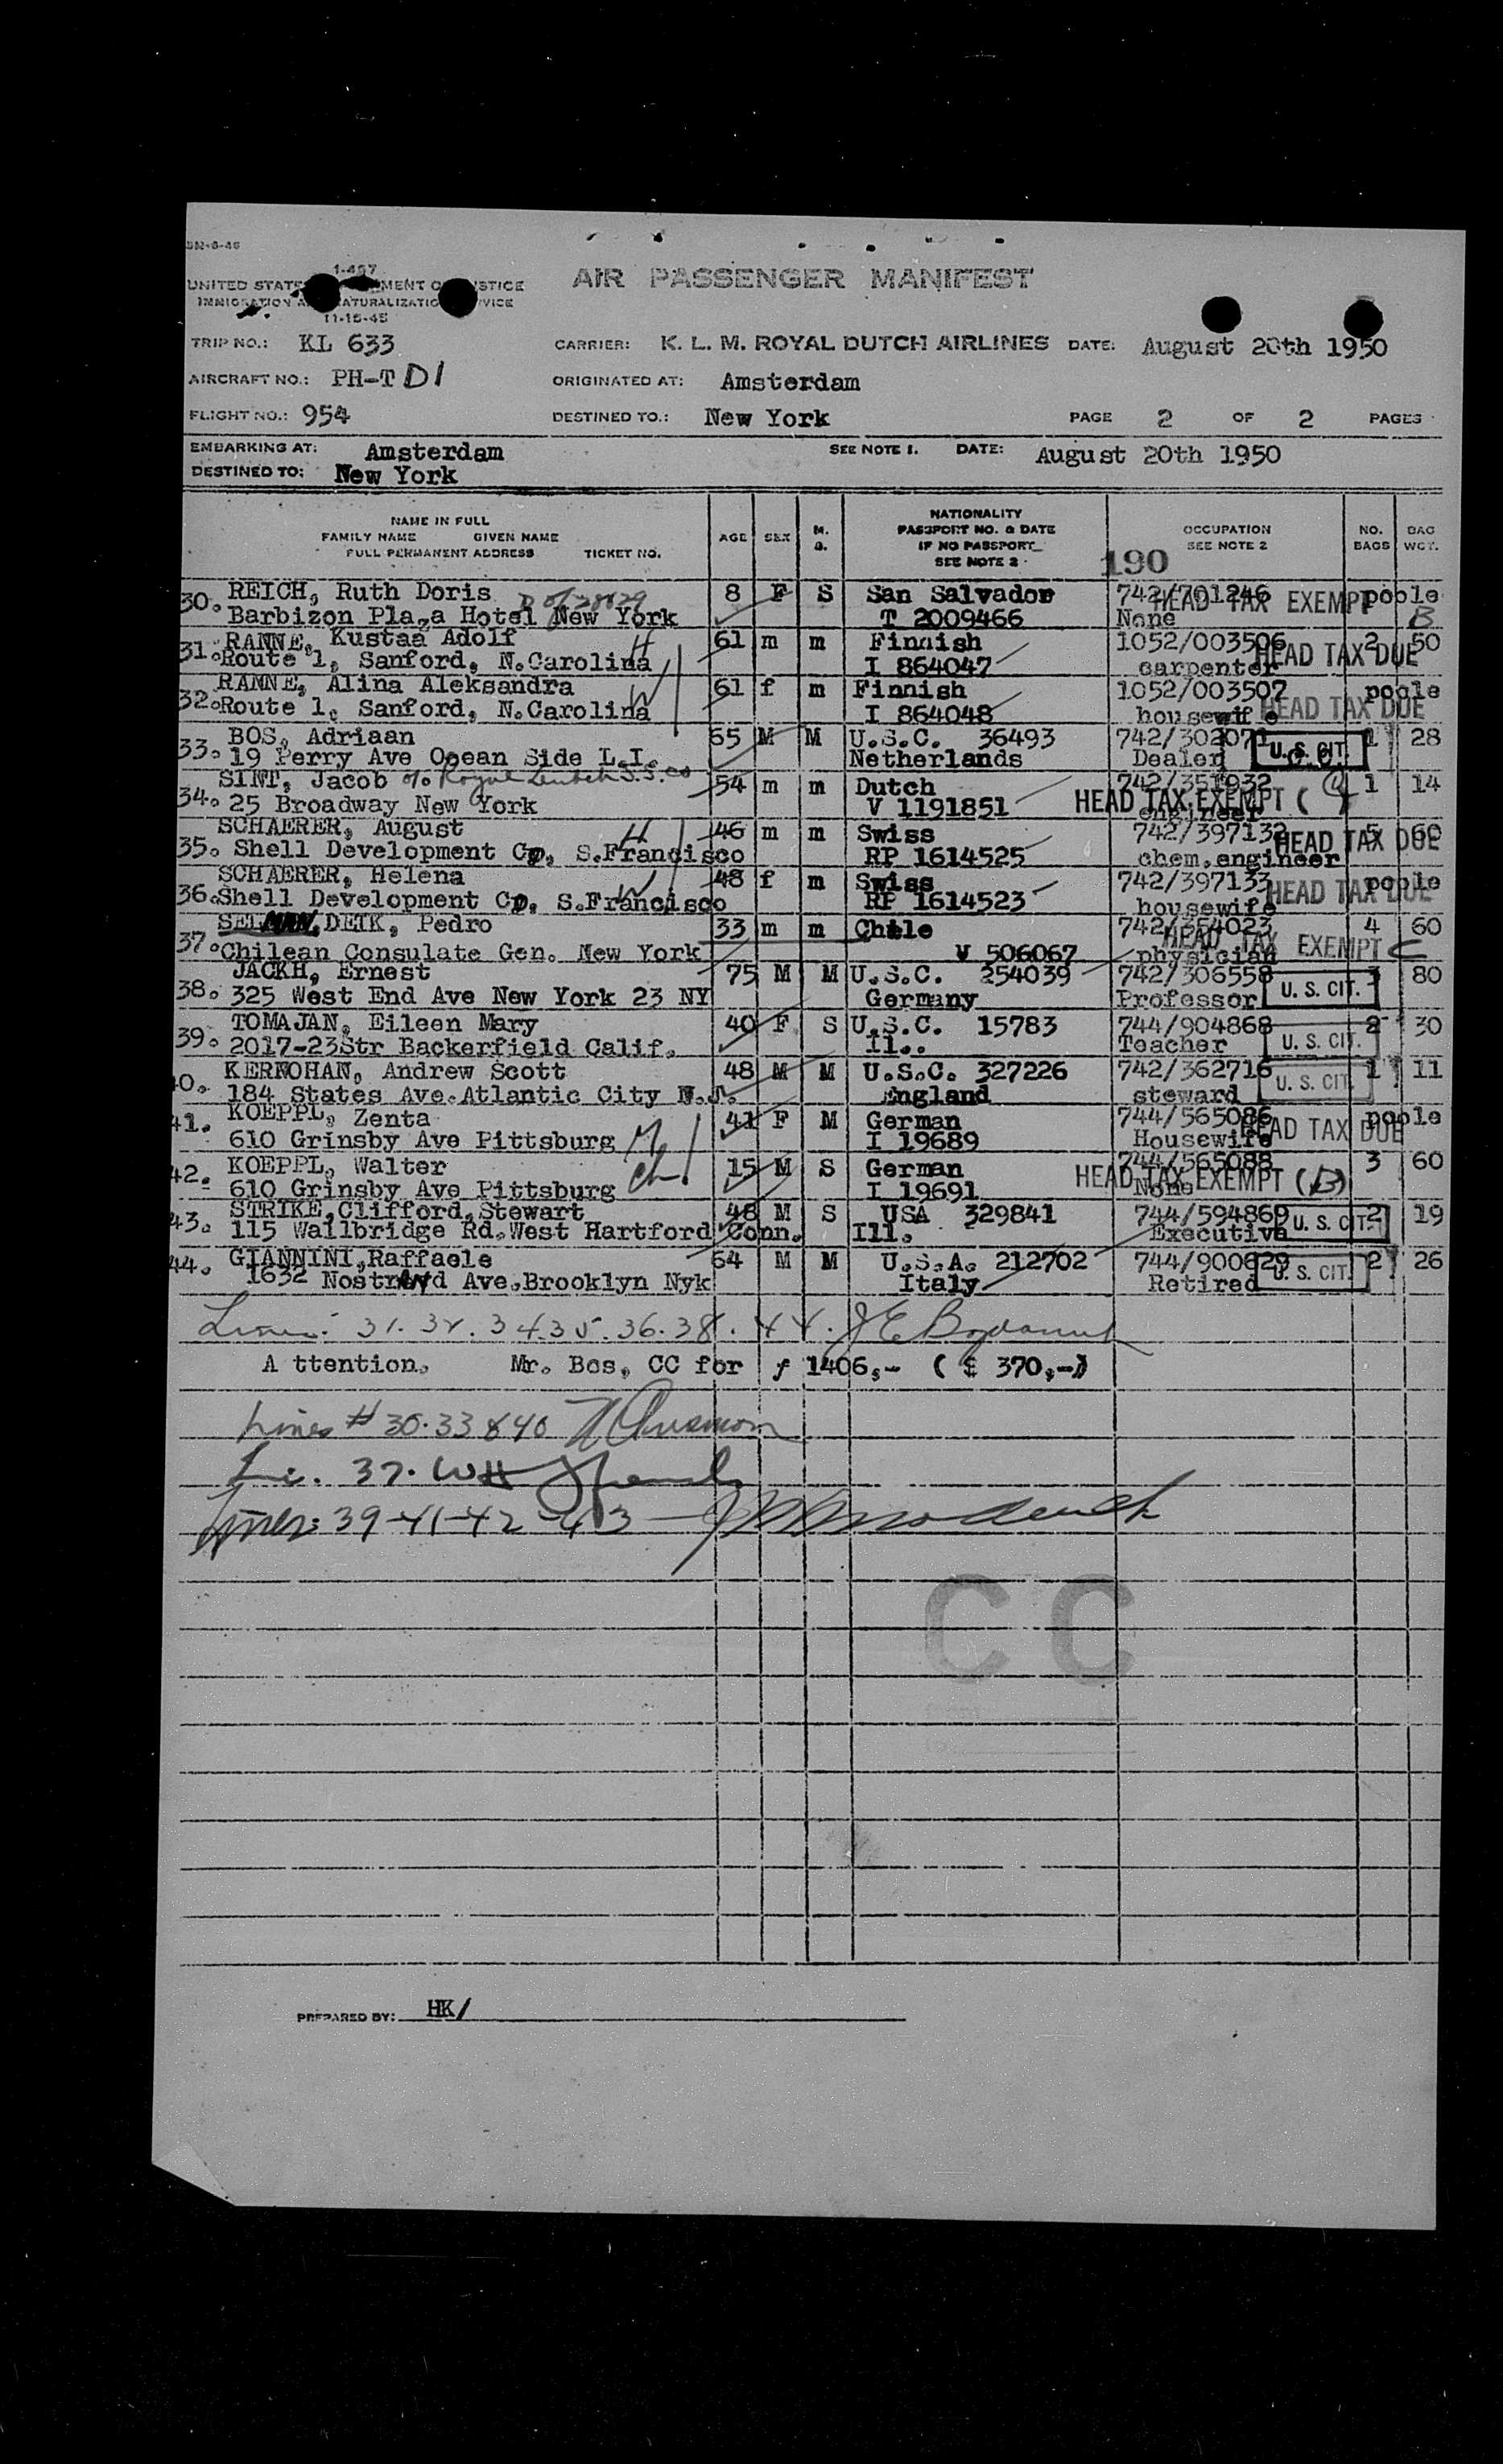 1-467
UNITED STATES DEPARTMENT OF JUSTICE
IMMIGRATION AND NATURALIZATION SERVICE
11-15-45
AIR PASSENGER MANIFEST
TRIP NO.: KL 633 CARRIER: K. L. M. ROYAL DUTCH AIRLINES DATE: August 20th 1950
AIRCRAFT NO.: PH-TDI ORIGINATED AT: Amsterdam
FLIGHT NO.: 954 DESTINED TO.: New York PAGE 2 OF 2 PAGES
EMBARKING AT: Amsterdam SEE NOTE 1. DATE: August 20th 1950
DESTINED TO: New York
NAME IN FULL
FAMILY NAME GIVEN NAME
FULL PERMANENT ADDRESS TICKET NO.
AGE SEX M. S.
NATIONALITY
PASSPORT NO. & DATE
IF NO PASSPORT
SEE NOTE 2
OCCUPATION
SEE NOTE 2
190
NO. BAGS
BAG WGT.
30. REICH, Ruth Doris 8 F S San Salvador 742/701246 poole
Barbizon Plaza Hotel New York T 2009466 None HEAD TAX EXEMPT B
31. RANNE, Kustaa Adolf 61 m m Finnish 1052/003506 2 50
Route 1, Sanford, N.Carolina I 864047 carpenter HEAD TAX DUE
32. RANNE, Alina Aleksandra 61 f m Finnish 1052/003507 poole
Route 1, Sanford, N.Carolina I 864048 housewife HEAD TAX DUE
33. BOS, Adriaan 65 M M U.S.C. 36493 742/302071 1 28
19 Perry Ave Ocean Side L.I. Netherlands Dealer U. S. CIT.
34. SINT, Jacob 54 m m Dutch 742/351932 1 14
25 Broadway New York V 1191851 engineer HEAD TAX EXEMPT ( )
35. SCHAERER, August 46 m m Swiss 742/397132 5 60
Shell Development Co, S.Francisco RP 1614525 chem.engineer HEAD TAX DUE
36. SCHAERER, Helena 48 f m Swiss 742/397133 poole
Shell Development Co, S.Francisco RP 1614523 housewife HEAD TAX DUE
37. SELMAN, DEIK, Pedro 33 m m Chile 742/354023 4 60
Chilean Consulate Gen. New York V 506067 physician HEAD TAX EXEMPT C
38. JACKH, Ernest 75 M M U.S.C. 254039 742/306558 3 80
325 West End Ave New York 23 NY Germany Professor U. S. CIT.
39. TOMAJAN, Eileen Mary 40 F S U.S.C. 15783 744/904868 2 30
2017-23Str Backerfield Calif. Il.. Teacher U. S. CIT.
40. KERNOHAN, Andrew Scott 48 M M U.S.C. 327226 742/362716 1 11
184 States Ave.Atlantic City N.J. England steward U. S. CIT.
41. KOEPPL, Zenta 41 F M German 744/565086 poole
610 Grinsby Ave Pittsburg I 19689 Housewife HEAD TAX DUE
42. KOEPPL, Walter 15 M S German 744/565088 3 60
610 Grinsby Ave Pittsburg I 19691 None HEAD TAX EXEMPT (B)
43. STRIKE,Clifford,Stewart 48 M S USA 329841 744/594869 2 19
115 Wallbridge Rd.West Hartford Conn. Ill. Executive U. S. CIT.
44. GIANNINI,Raffaele 64 M M U.S.A. 212702 744/900829 2 26
1632 Nostrand Ave.Brooklyn Nyk Italy Retired U. S. CIT.
Lines: 31. 32. 34. 35. 36. 38. 44.
A ttention. Mr. Bos, CC for ƒ 1406,- ( $ 370,-)
Lines # 30.33 & 40
Li. 37.
Lines: 39-41-42-43
CC
PREPARED BY: HK/